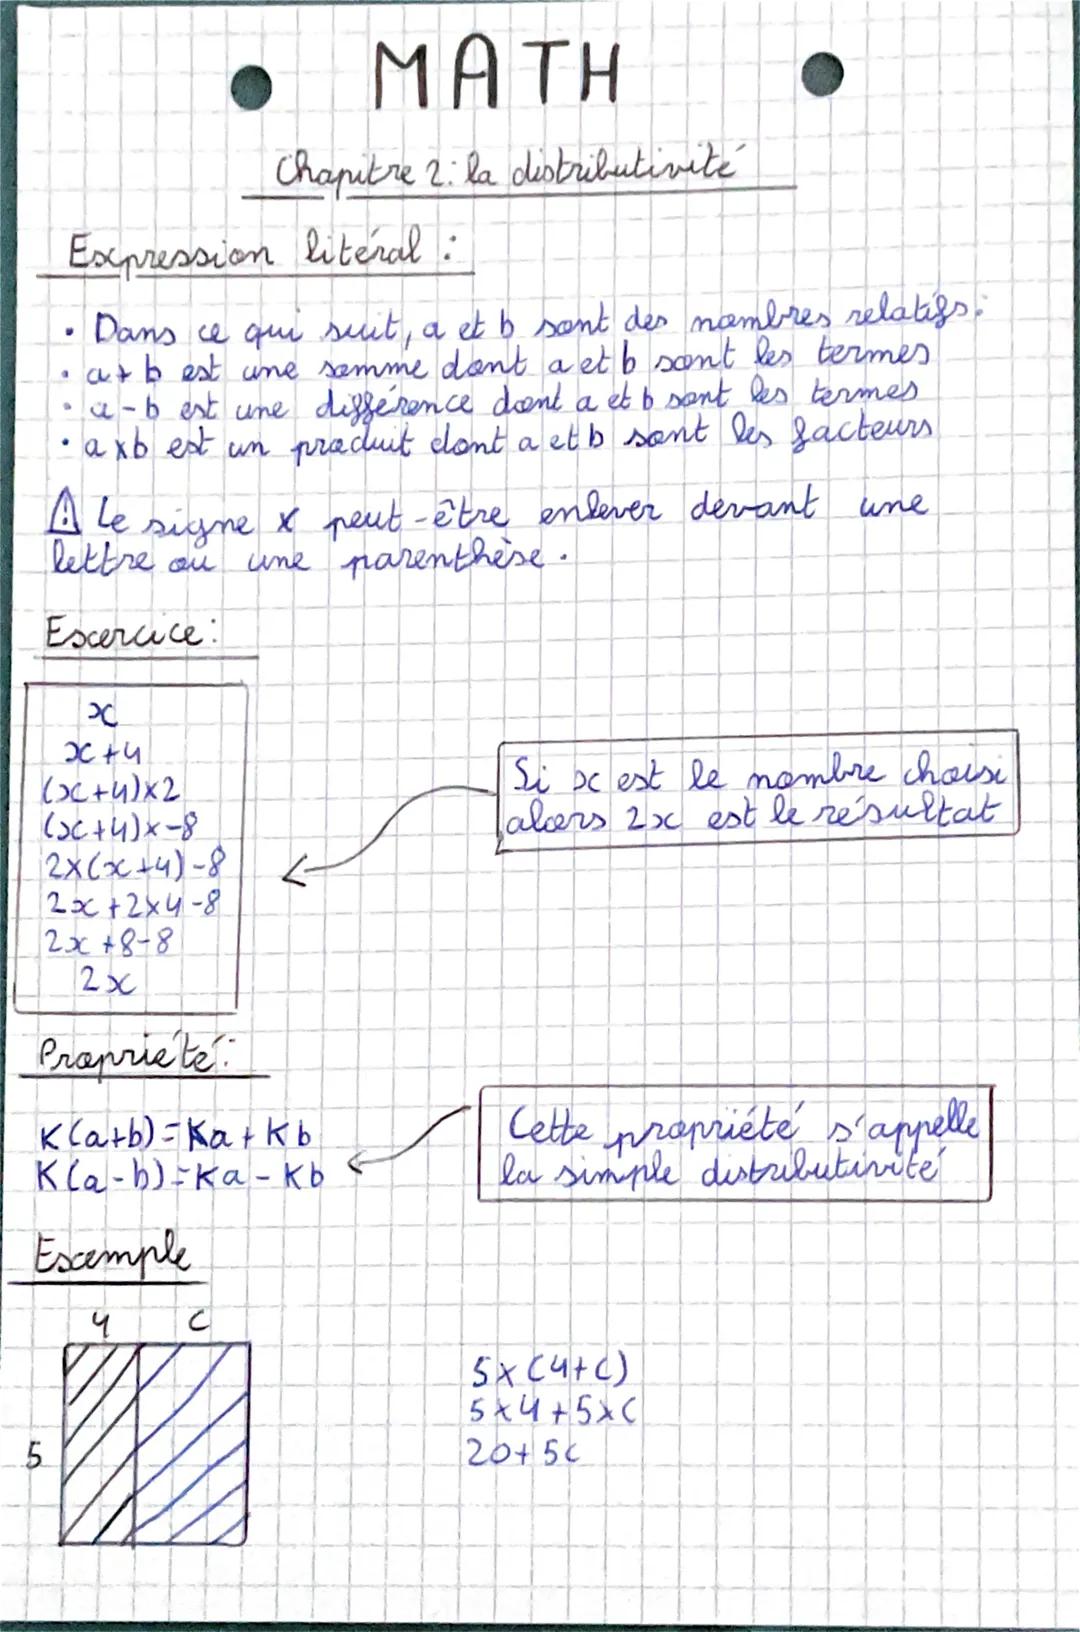 MATH
Chapitre 2: la distributivité
Expression litéral :
• Dans ce qui suit, a et b sont des nombres relatifs:
• a+b est une somme dont a et b sont les termes
• a-b est une différence dont a et b sont les termes
• axb est un produit dont a et b sont les facteurs
⚠ Le signe x peut-être enlever devant une
lettre ou une parenthèse.
Exercice:
x
x+4
(x+4)x2
(x+4)x-8
2x(x+4)-8
2x+2x4-8
2x+8-8
2x
Si x est le nombre choisi
alors 2x est le résultat
Propriété:
K(a+b)=Ka+Kb
K(a-b)=Ka-Kb
Cette propriété s'appelle
la simple distributivité
Exemple
4 C
5
5x(4+C)
5x4+5xC
20+5C